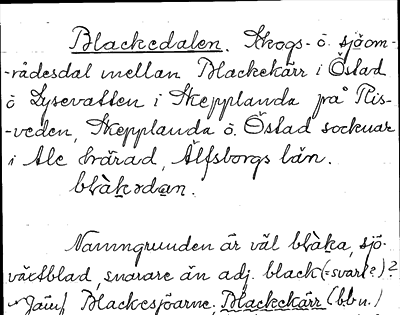 Blackedalen. Skogs- o. sjöom-
-rådesdal mellan Blackekärr i Östad
o Lysevatten i Skepplanda på Ris-
-veden, Skepplanda o. Östad socknar
i Ale härad, Älfsborgs län.
Namngrunden är väl blåka, sjö-
växtblad, snarare än adj. black (=svart?)?
Jämf Blackesjöarne, Blackekärr (bbn.)